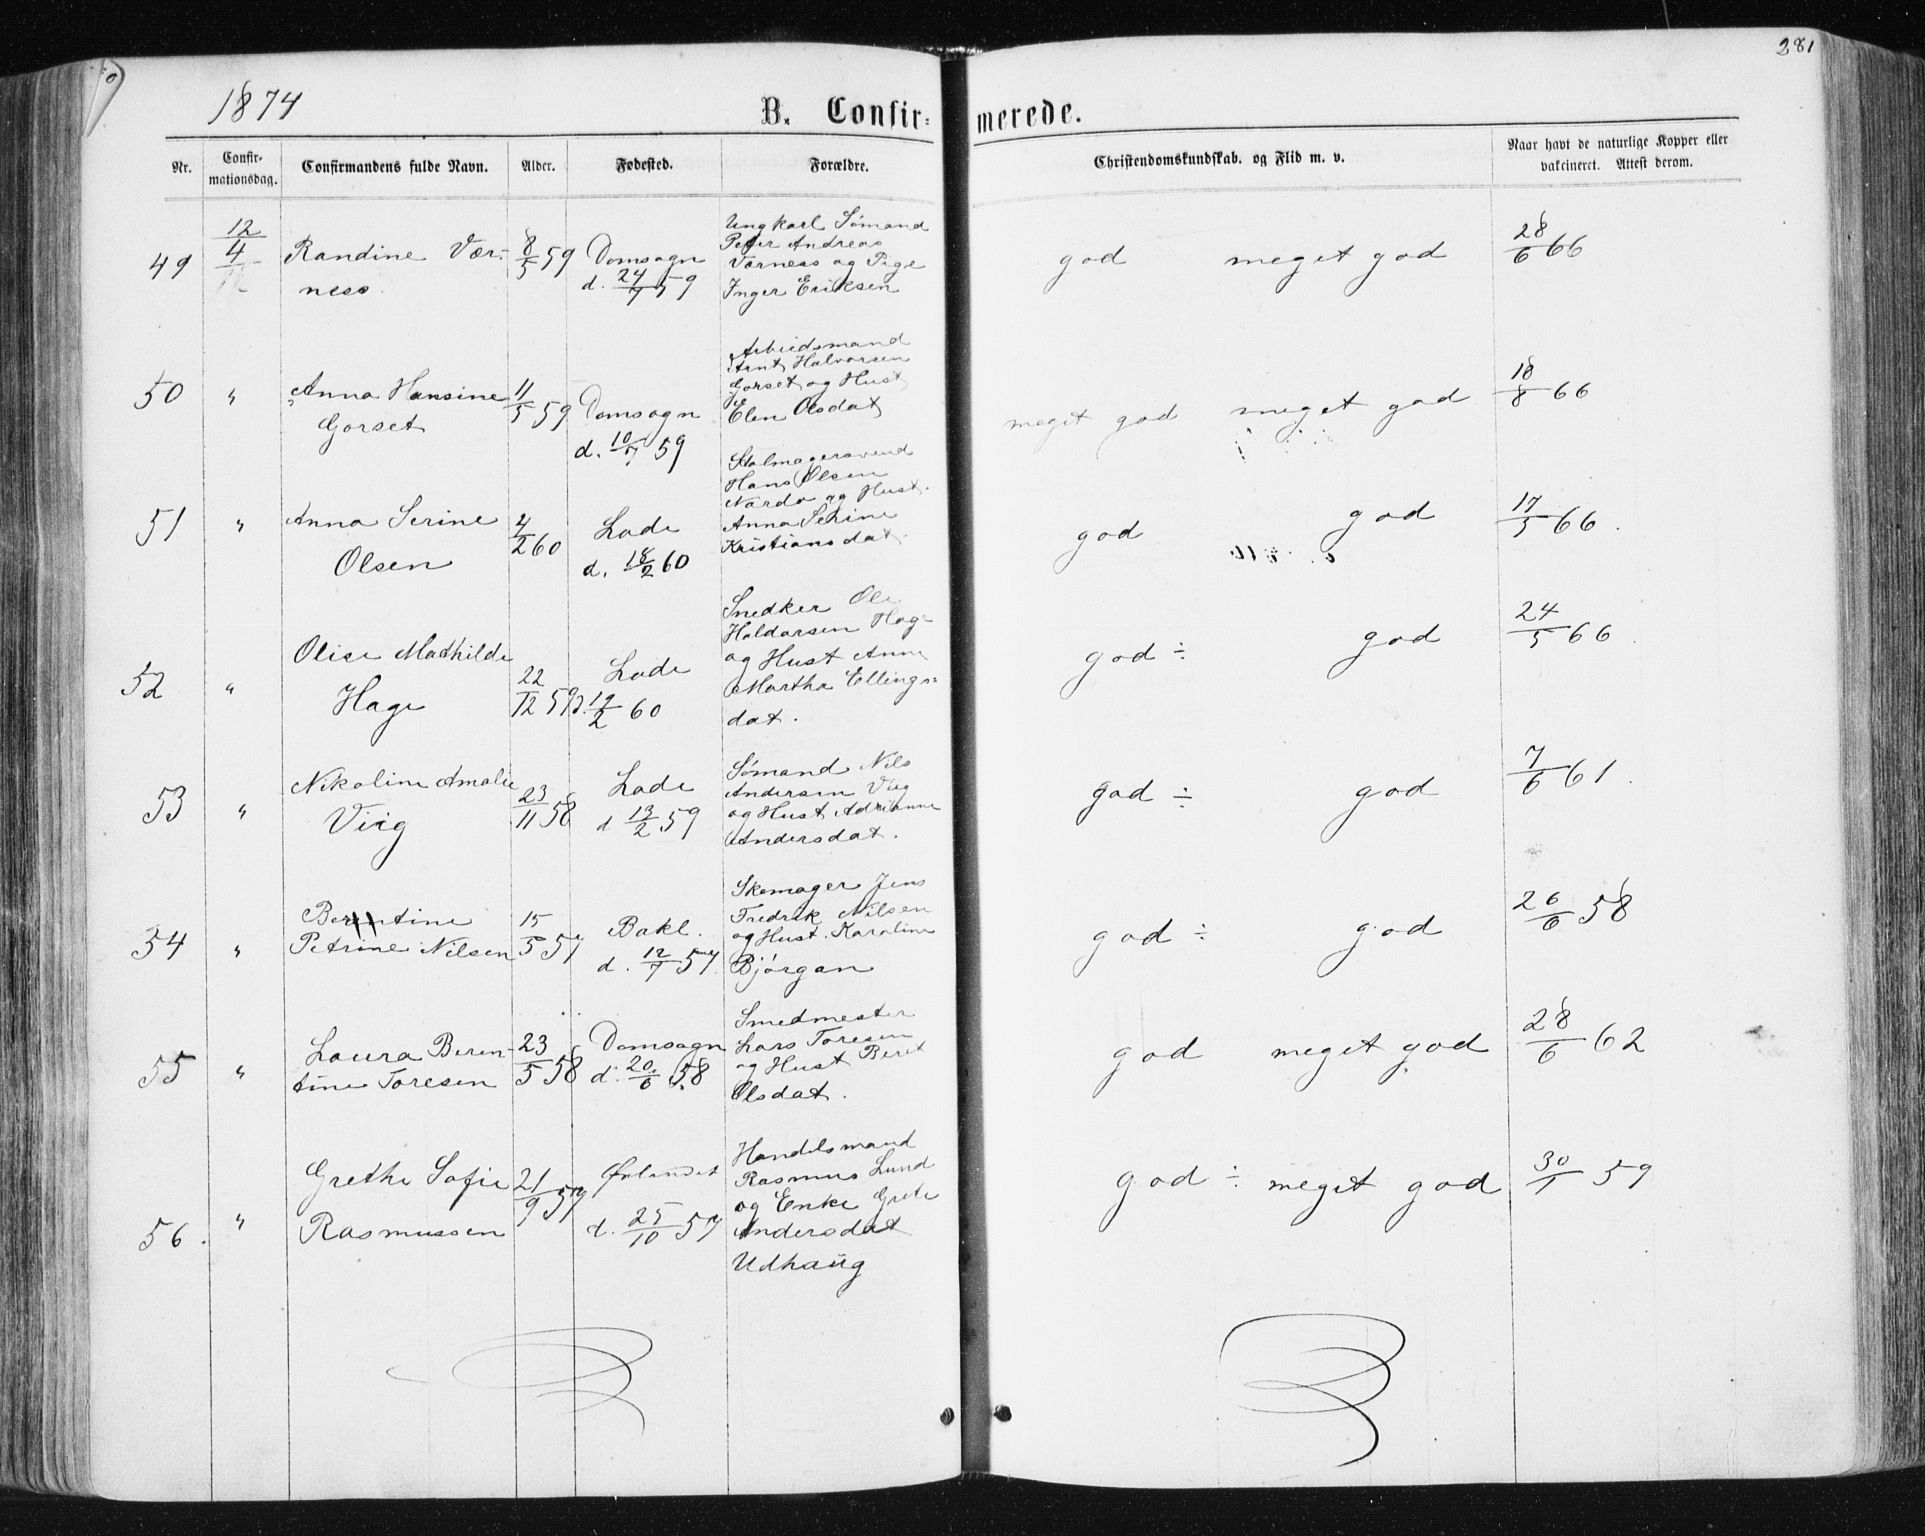 281
1874
B. Confir-
merede.
Nr.
Confir-
mationsdag.
Confirmandens fulde Navn.
Alder.
Fødested.
Forældre.
Christendomskundskab. og Flid m. v.
Naar havt de naturlige Kopper eller
vakcineret. Attest derom.
49
12/4
Randine Vær-
ness
8/5 59
Domsogn
d. 24/7 59
Ungkarl Sømand
Peter Andreas
Værness og Pige
Inger Eriksen
god
meget god
28/6 66
50
"
Anna Hansine
Gorset
11/5 59
Domsogn
d. 10/7 59
Arbeidsmand
Arnt Halvorsen
Gorset og Hust
Elen Olsdat
meget god
meget god
18/8 66
51
"
Anna Serine
Olsen
4/2 60
Lade
d. 18/2 60
Salmagersvend
Hans Olsen
Nardo og Hust.
Anna Serine
Kristiansdat
god
god
17/5 66.
52
"
Olise Mathilde
Hage
22/12 59
Lade
d. 19/2 60
Snedker Ole
Haldorsen Hage
og Hust Anne
Martha Ellings-
dat.
god ÷
god
24/5 66.
53
"
Nikoline Amalie
Viig
23/11 58
Lade
d 13/2 59
Sømand Nils
Andersen Viig
og Hust Adrianne
Andersdat.
god ÷
god
7/6 61.
54
"
Berntine
Petrine Nilsen
15/5 57
Bakl.
d. 12/7 57
Skomager Jens
Fredrik Nilsen
og Hust. Karoline
Bjørgan
god ÷
god
26/6 58
55
"
Laura Beren-
tine Toresen
23/5 58
Domsogn
d. 20/6 58
Smedmester
Lars Toresen
og Hust Beret
Olsdat.
god
meget god
28/6 62
56.
"
Grethe Sofie
Rasmussen
21/9 57
Ørlandet
d. 25/10 57
Handelsmand
Rasmus Lund
og Enke Grete
Andersdat
Udhaug
god ÷
meget god
30/1 59